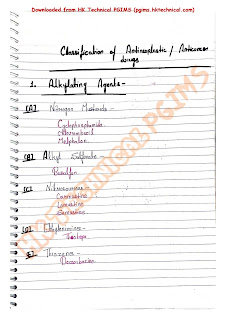 Downloaded from HK Technical PGIMS (pgims.hktechnical.com)
Classification of Antineoplastic / Anticancer
drugs
1. Alkylating Agents -
[A] Nitrogen Mustards -
Cyclophosphamide
Chlorambucil
Melphalan
[B] Alkyl Sulfonate -
Busulfan
[C] Nitrosoureas -
Carmustine
Lomustine
Semustine
[D] Ethylenimines -
Thiotepa
[E] Triazenes -
Dacarbazine
HK TECHNICAL PGIMS